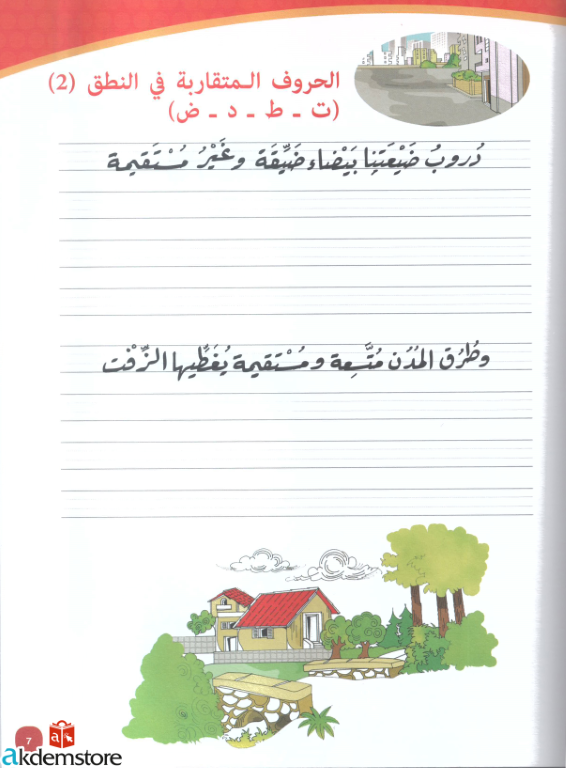 الحروف المتقاربة في النطق (2)
(ت - ط - د - ض)
دُروبُ ضَيْعَتِنا بَيْضاء ضَيِّقَة وغَيْرُ مُسْتَقيمة
وطُرُق المُدُن مُتَّسِعة ومُسْتقيمة يُغَطّيها الزِّفْت
7
akdemstore